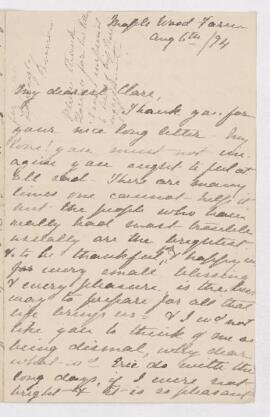 Maple Wood Farm
Aug 6th /94
My dearest Clare,
Thank you for
your nice long letter. My
love! you must not im-
agine you ought to feel at
all sad - There are many
times one cannot help it
but the people who have
really had most trouble
usually are the brightest
& to be thankful, & happy
for every small blessing
& every pleasure, is the
way to prepare for all that
life brings us - & I wd not
like you to think of me as
being dismal, why dear
what wd Eric do with the
long days, if I were not
bright & it is so pleasant